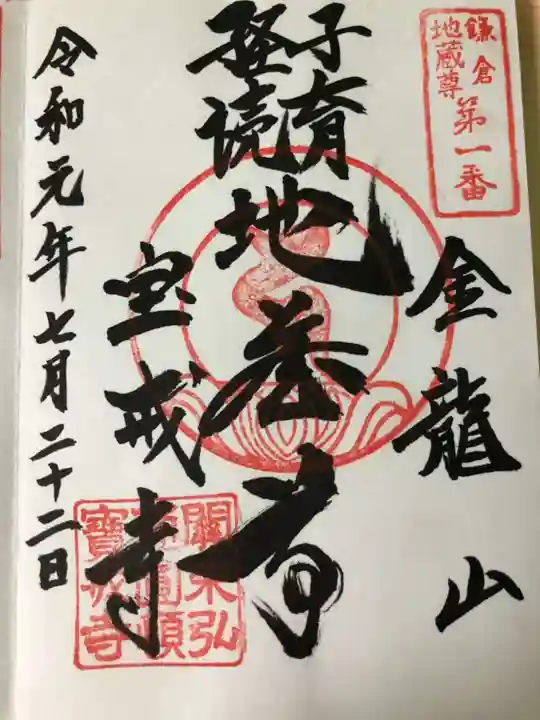 鎌倉
地蔵尊
第一番
金龍山
子育
経読
地蔵尊
宝戒寺
關東弘
通圓頓
寶戒寺
令和元年七月二十二日